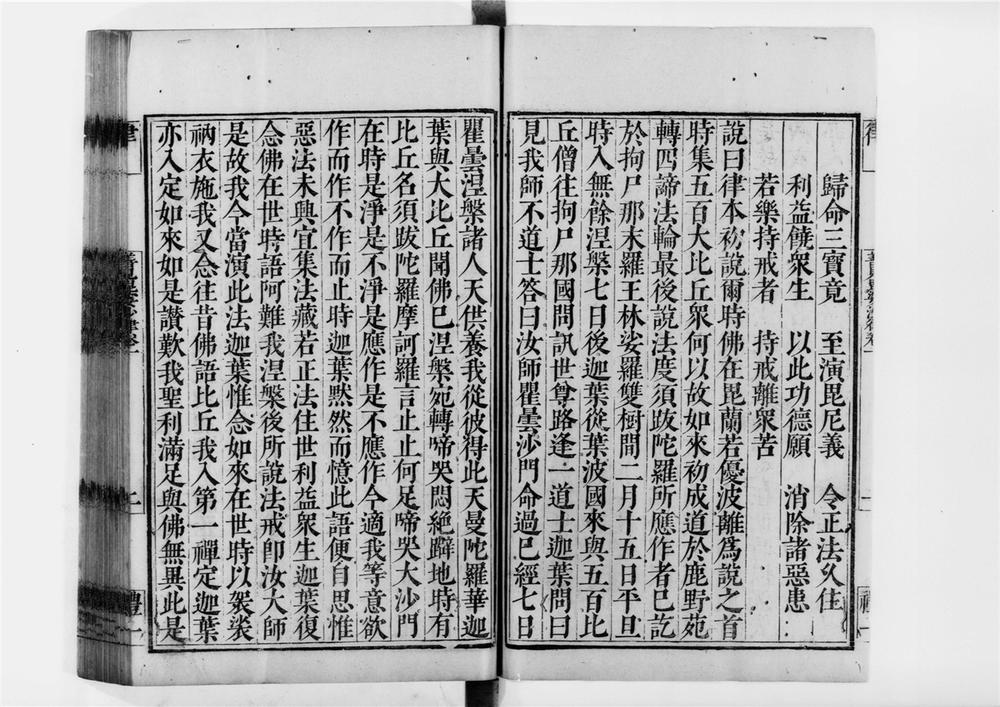 歸命三寶竟　至演毘尼義　令正法久住
利益饒衆生　以此功德願　消除諸惡患
若樂持戒者　持戒離衆苦
說曰律本初說爾時佛在毘蘭若優波離爲說之首
時集五百大比丘衆何以故如來初成道於鹿野苑
轉四諦法輪最後說法度須跋陀羅所應作者已訖
於拘尸那末羅王林娑羅雙樹間二月十五日平旦
時入無餘涅槃七日後迦葉從葉波國來與五百比
丘僧往拘尸那國問訊世尊路逢一道士迦葉問曰
見我師不道士答曰汝師瞿曇沙門命過已經七日
瞿曇涅槃諸人天供養我從彼得此天曼陀羅華迦
葉與大比丘聞佛已涅槃宛轉啼哭悶絕躃地時有
比丘名須跋陀羅摩訶羅言止止何足啼哭大沙門
在時是淨是不淨是應作是不應作今適我等意欲
作而作不作而止時迦葉黙然而憶此語便自思惟
惡法未興宜集法藏若正法住世利益衆生迦葉復
念佛在世時語阿難我涅槃後所說法戒卽汝大師
是故我今當演此法迦葉惟念如來在世時以袈裟
衲衣施我又念往昔佛語比丘我入第一禪定迦葉
亦入定如來如是讃歎我聖利滿足與佛無異此是
律
二
禮一